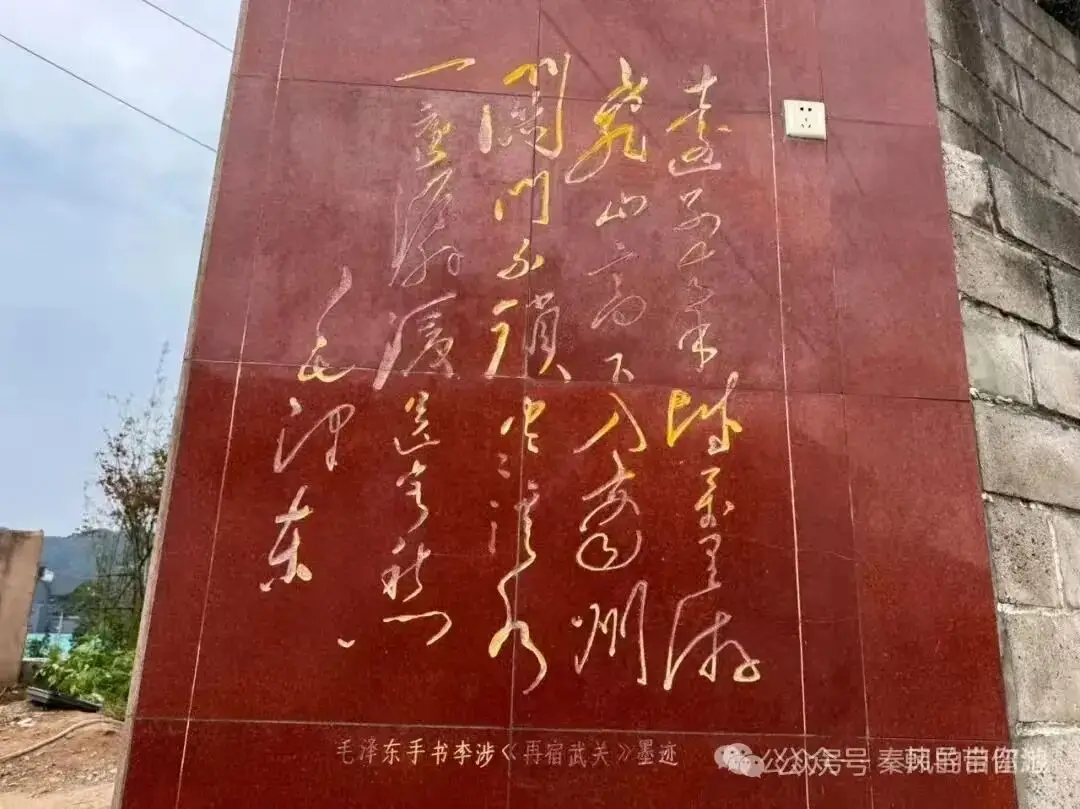 遠别秦城萬里游
亂山高下入商州
關門不鎖寒溪水
一夜潺湲送客愁
毛泽东
毛泽东手书李涉《再宿武关》墨迹
公众号